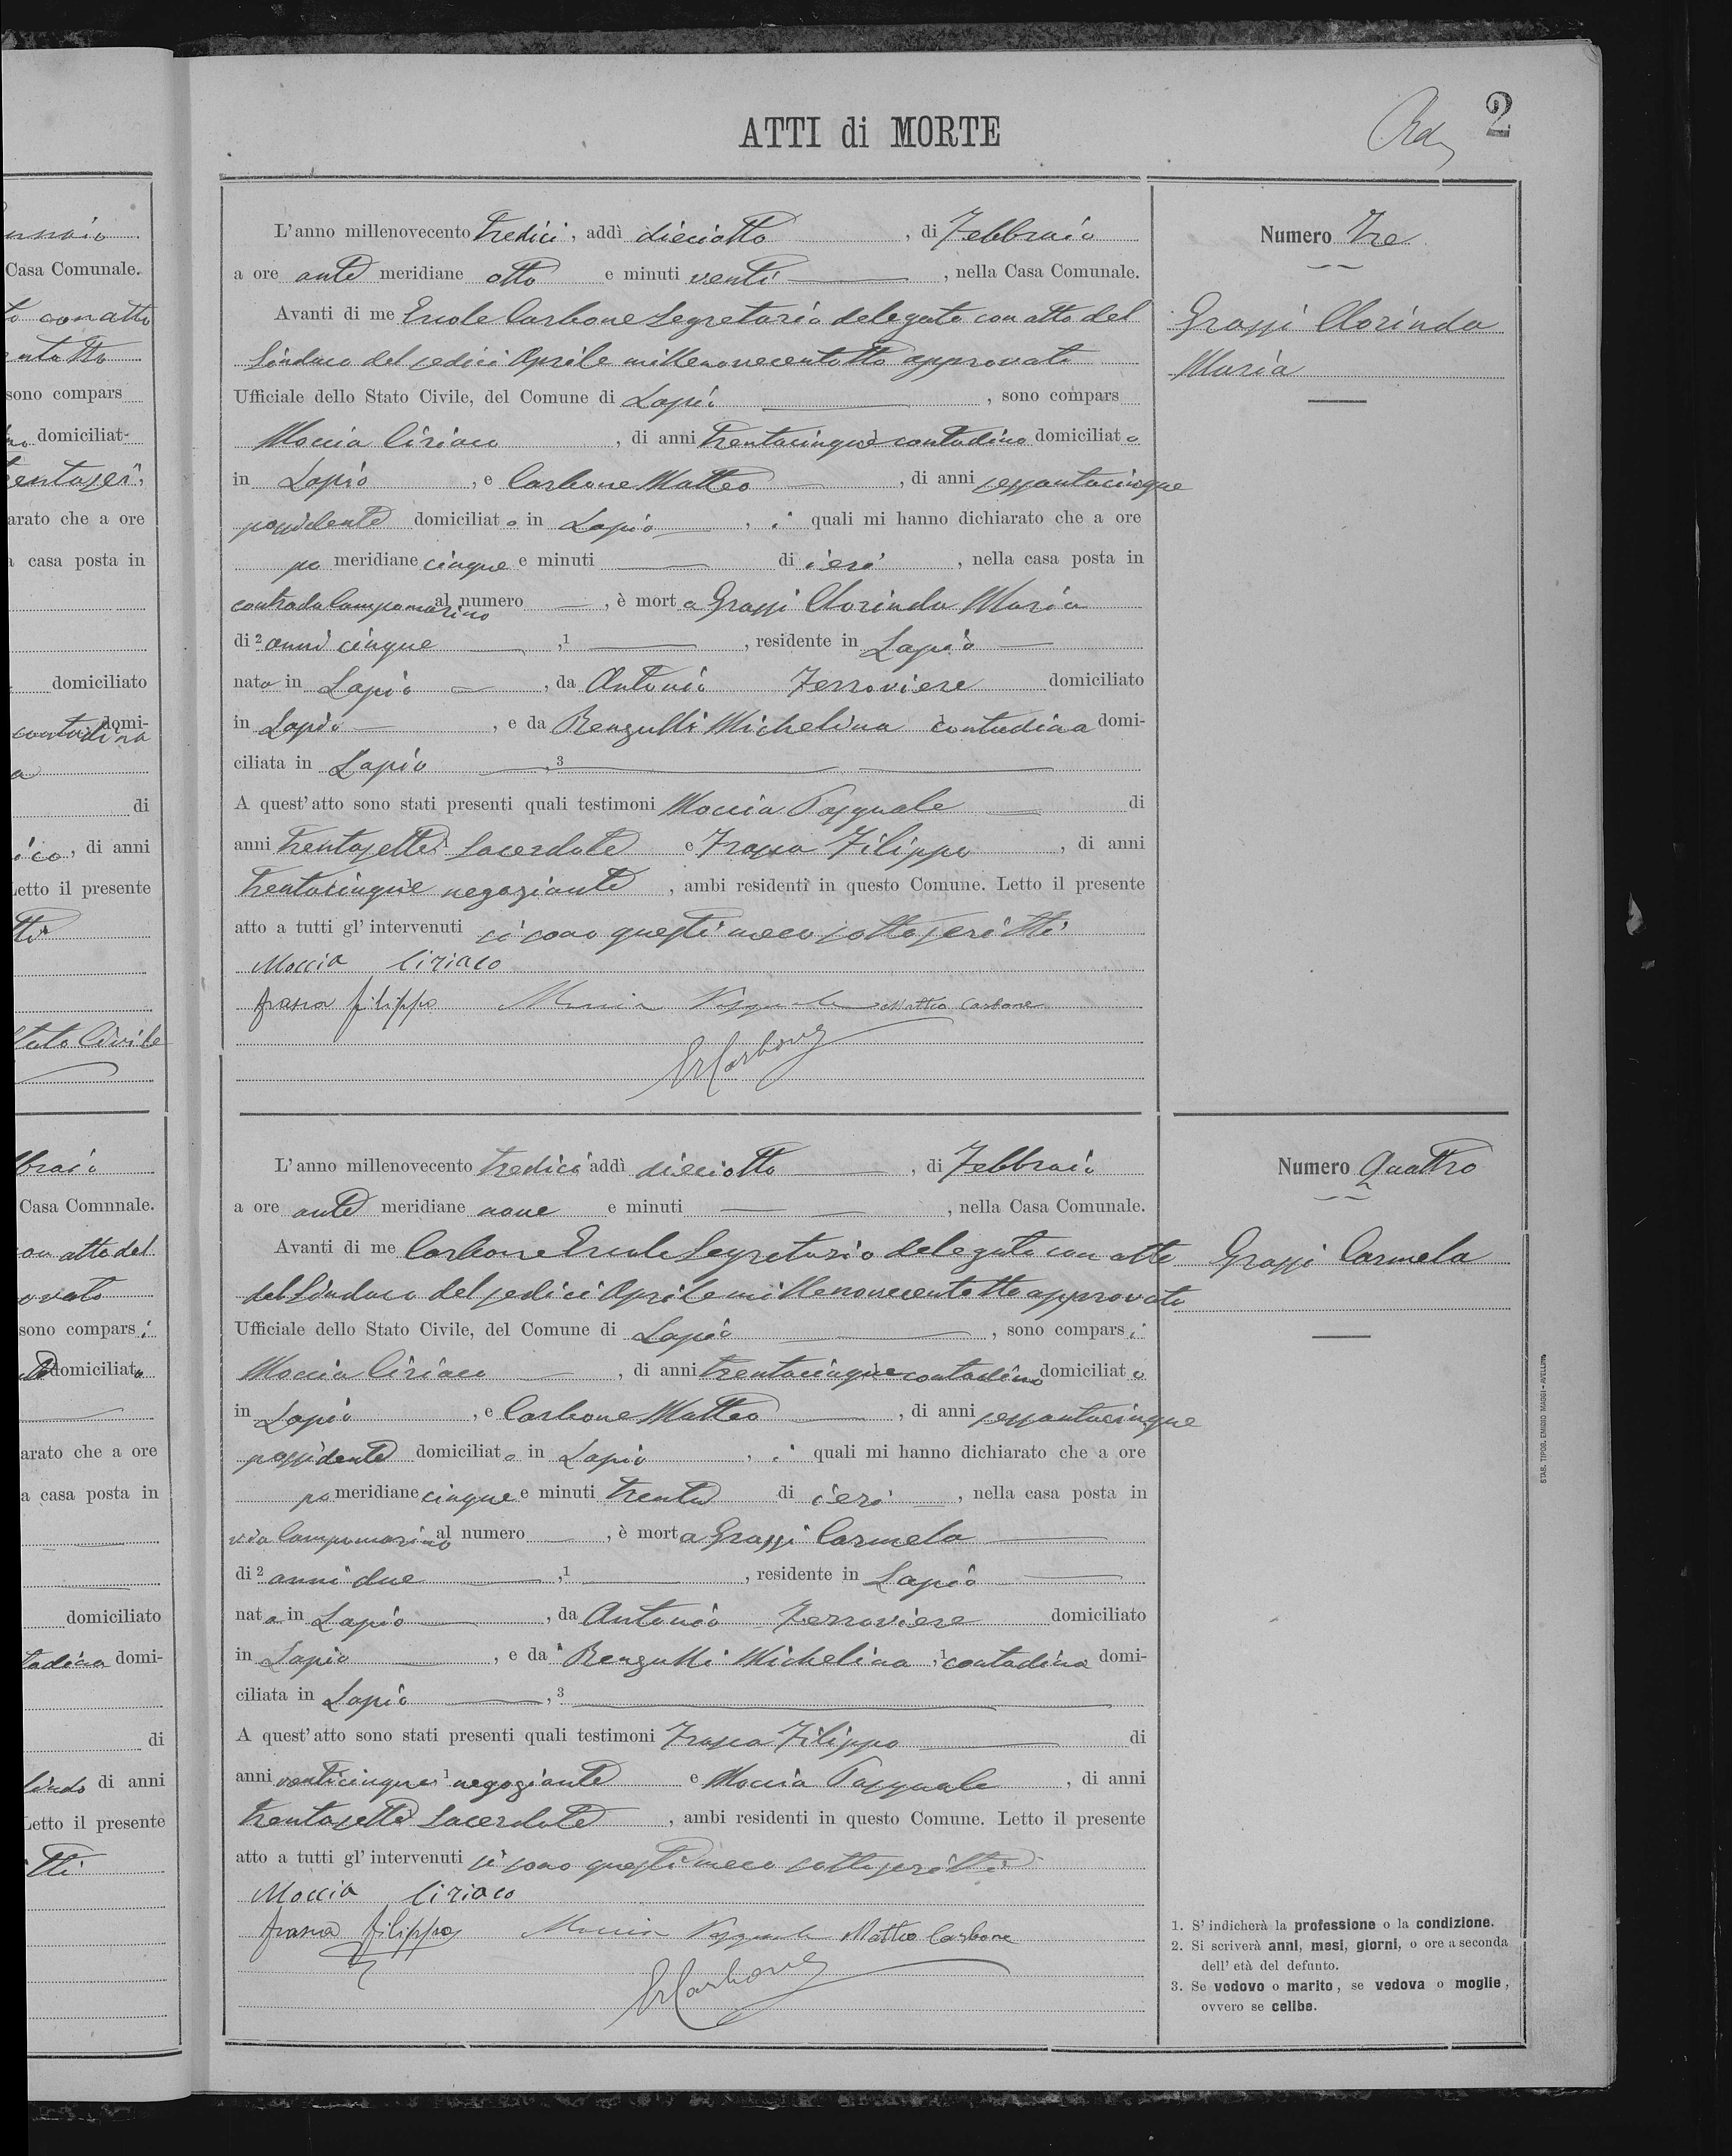 unnaio
Casa Comunale.
to con atto
sono compars
domiciliat-
entasei,
arato che a ore
a casa posta in
domiciliato
contadina domi-
a
di
ico, di anni
Letto il presente
tti
Stato Civile
bbraio
Casa Comnnale.
con atto del
ovato
sono compars i
domiciliato
arato che a ore
a casa posta in
domiciliato
tadina domi-
di
di anni
Letto il presente
tti
ATTI di MORTE
2
L'anno millenovecento tredici, addì dieciotto, di Febbraio
a ore ante meridiane otto e minuti venti, nella Casa Comunale.
Avanti di me Ercole Carbone Segretario delegato con atto del
Sindaco del sedici Aprile millenovecentotto approvato
Ufficiale dello Stato Civile, del Comune di Lapio, sono compars
Moccia Ciriaco, di anni trentacinque contadino domiciliato
in Lapio, e Carbone Matteo, di anni sessantacinque
possidente domiciliato in Lapio, i quali mi hanno dichiarato che a ore
po meridiane cinque e minuti di ieri, nella casa posta in
contrada Campomarino al numero, è morta Grassi Clorinda Maria
di 2 anni cinque, 1, residente in Lapio
nata in Lapio, da Antonio Ferroviere domiciliato
in Lapio, e da Renzulli Michelina contadina domi-
ciliata in Lapio, 3
A quest'atto sono stati presenti quali testimoni Moccia Pasquale di
anni trentasette Sacerdote e Frasca Filippo, di anni
trentacinque negoziante, ambi residenti in questo Comune. Letto il presente
atto a tutti gl'intervenuti si sono questi meco sottoscritti
Moccia Ciriaco
frasca filippo Moccia Pasquale Matteo Carbone
ErCarbone
Numero Tre
Grassi Clorinda
Maria
L'anno millenovecento tredici addì dieciotto, di Febbraio
a ore ante meridiane nove e minuti, nella Casa Comunale.
Avanti di me Carbone Ercole Segretario delegato con atto
del Sindaco del sedici Aprile millenovecentotto approvato
Ufficiale dello Stato Civile, del Comune di Lapio, sono compars i
Moccia Ciriaco, di anni trentacinque contadino domiciliato
in Lapio, e Carbone Matteo, di anni sessantacinque
possidente domiciliato in Lapio, i quali mi hanno dichiarato che a ore
po meridiane cinque e minuti trenta di ieri, nella casa posta in
via Campomarino al numero, è morta Grassi Carmela
di 2 anni due, 1, residente in Lapio
nata in Lapio, da Antonio Ferroviere domiciliato
in Lapio, e da Renzulli Michelina, 1 contadina domi-
ciliata in Lapio, 3
A quest'atto sono stati presenti quali testimoni Frasca Filippo di
anni venticinque 1 negoziante e Moccia Pasquale, di anni
trentasette Sacerdote, ambi residenti in questo Comune. Letto il presente
atto a tutti gl'intervenuti si sono questi meco sottoscritti
Moccia Ciriaco
frasca filippo Moccia Pasquale Matteo Carbone
ErCarbone
Numero Quattro
Grassi Carmela
1. S'indicherà la professione o la condizione.
2. Si scriverà anni, mesi, giorni, o ore a seconda
dell'età del defunto.
3. Se vedovo o marito, se vedova o moglie,
ovvero se celibe.
STAB. TIPOG. EMIDIO MAGGI - AVELLINO